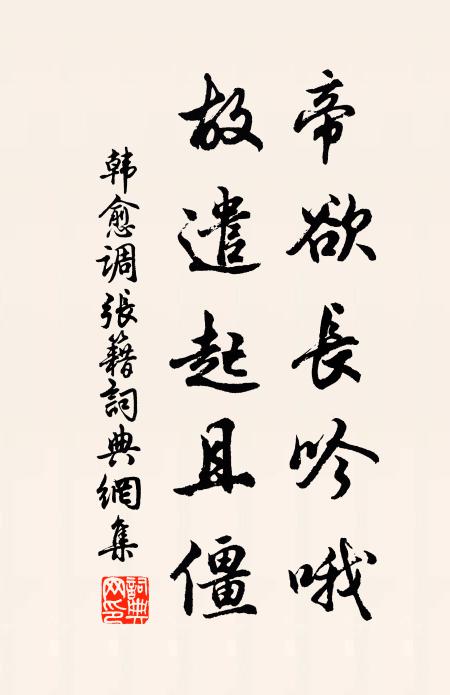 帝欲長吟哦
故遣起且僵
韓愈调張籍詞典網集
詞典网印